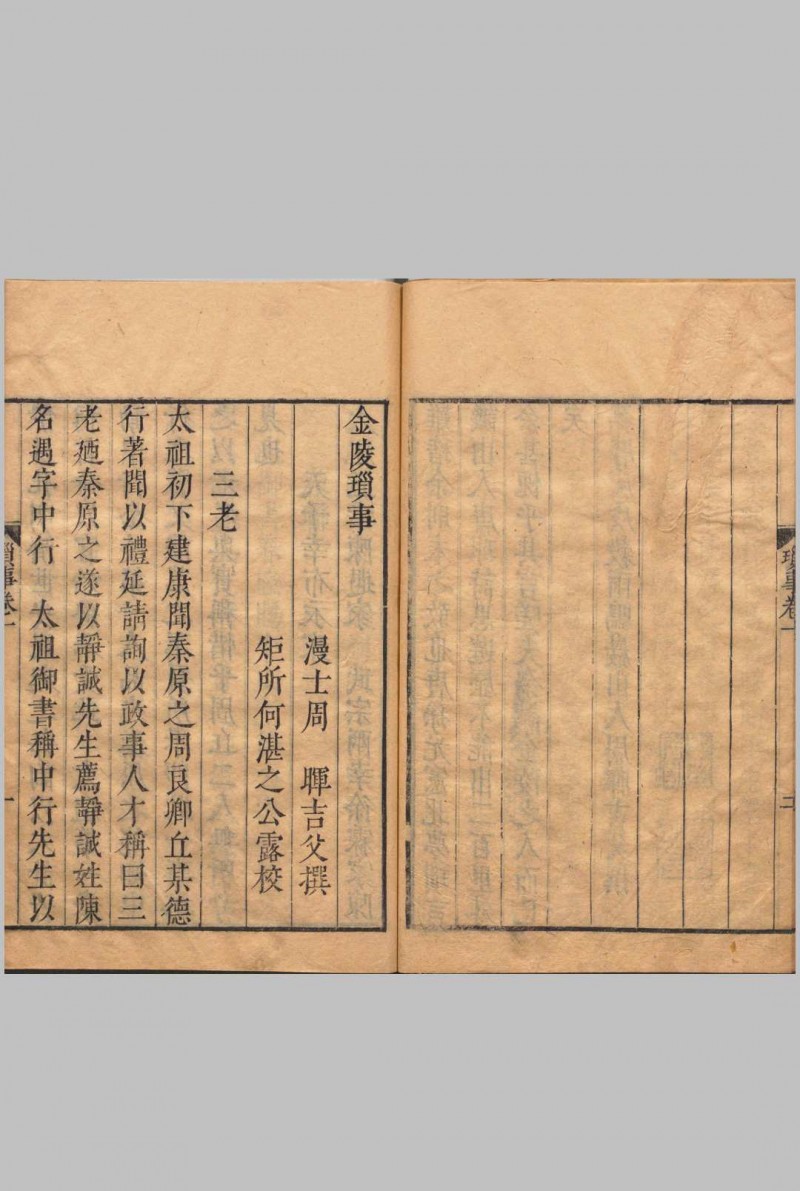 瑣事卷一
金陵瑣事
漫士周　暉吉父撰
矩所何湛之公露校
三老
太祖初下建康聞秦原之周良卿丘某德
行著聞以禮延請詢以政事人才稱曰三
老廼秦原之遂以靜誠先生薦靜誠姓陳
名遇字中行　太祖御書稱中行先生以
瑣事卷一
一